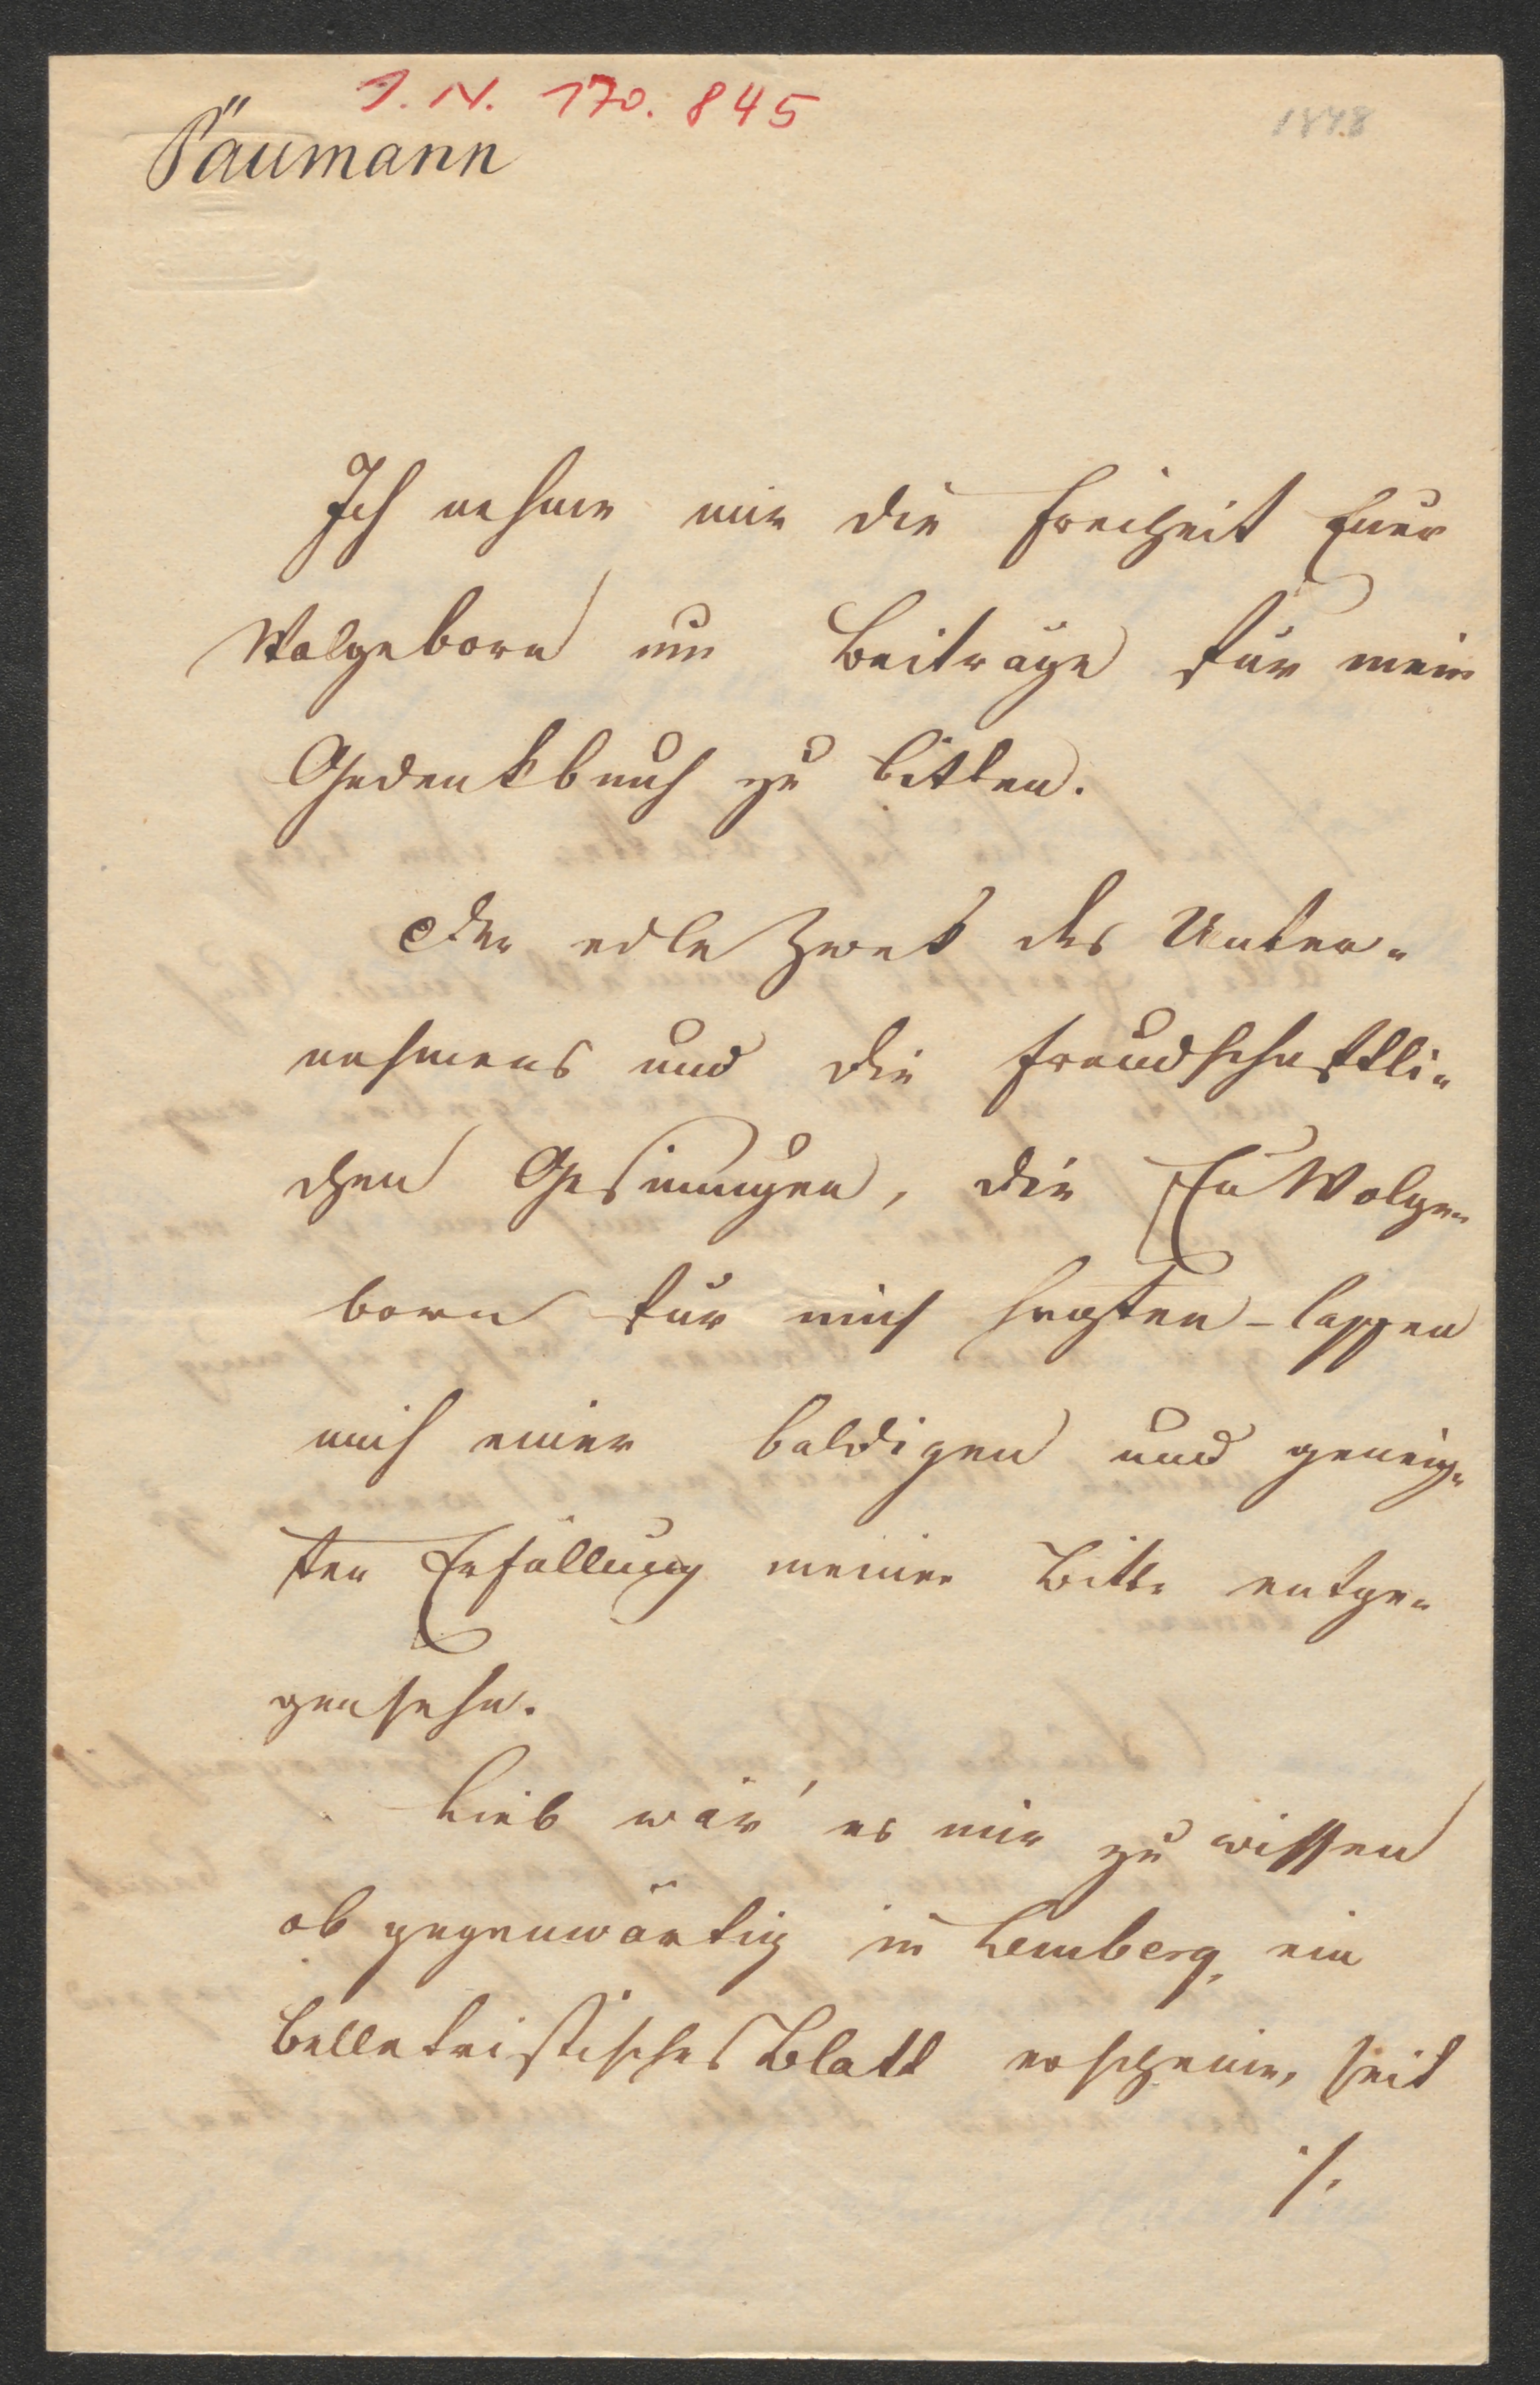 I. N. 170.845
1848
Päumann
Ich nehme mir die Freiheit Euer
Wolgeborn um Beiträge für mein
Gedenkbuch zu bitten.
Der edle Zwek des Unter-
nehmens und die freudschaftli-
chen Gesinnungen, die Eu Wolge-
born für mich hegten - lassen
mich einer baldigen und geneig-
ten Erfüllung meiner Bitte entge-
gensehn.
Lieb wär' es mir zu wissen
ob gegenwärtig in Lemberg, ein
belletristisches Blatt erscheine, seit
./.